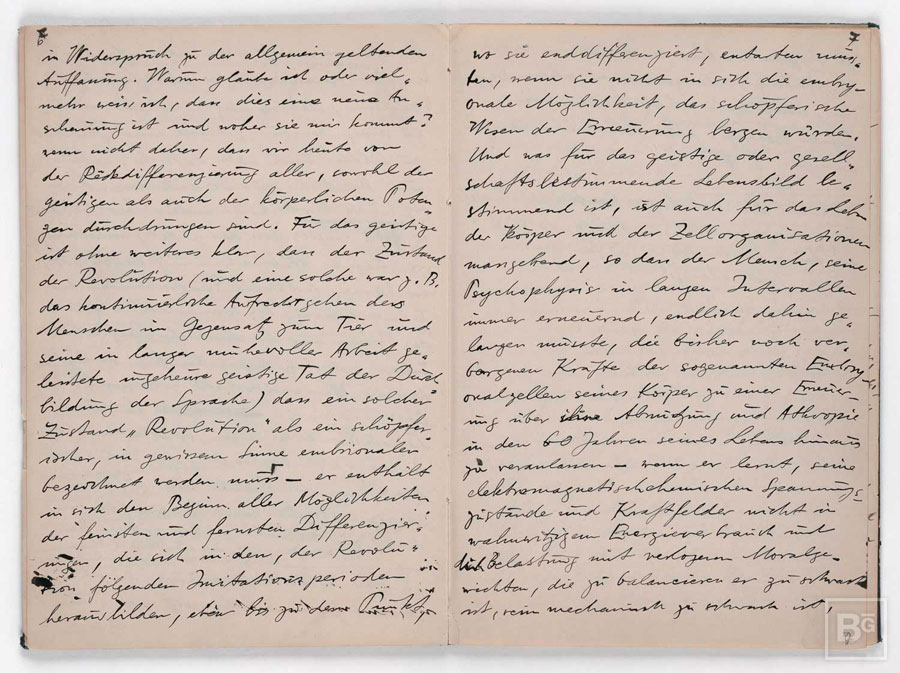 6
in Widerspruch zu der allgemein geltenden
Auffassung. Warum glaube ich oder viel„
mehr weiss ich, dass dies eine neue An„
schauung ist und woher sie mir kommt?
wenn nicht daher, dass wir heute von
der Rückdifferenzierung aller, sowohl der
geistigen als auch der körperlichen Poten„
zen durchdrungen sind. Für das geistige
ist ohne weiteres klar, dass der Zustand
der Revolution (und eine solche war z. B.
das kontinuierliche Aufrechtgehen des
Menschen im Gegensatz zum Tier und
seine in langer mühevoller Arbeit ge„
leistete ungeheure geistige Tat der Durch
bildung der Sprache) dass ein solcher
Zustand „Revolution" als ein schöpfer„
ischer, in gewissem Sinne embrionaler
bezeichnet werden muss – er enthält
in sich den Beginn aller Möglichkeiten
der feinsten und fernsten Differenzier„
ungen, die sich in den, der Revolu„
tion folgenden Imitationsperioden
herausbilden, etwa bis zu dem Punkt,
7
wo sie enddifferenziert, entarten müs„
ten, wenn sie nicht in sich die embry„
onale Möglichkeit, das schöpferische
Wesen der Erneuerung bergen würden.
Und was für das geistige oder gesell„
schaftsbestimmende Lebensbild be„
stimmend ist, ist auch für das Leben
der Körper und der Zellorganisationen
massgebend, so dass der Mensch, seine
Psychophysis in langen Intervallen
immer erneuernd, endlich dahin ge„
langen müsste, die bisher noch ver„
borgenen Kräfte der sogenannten Embry
onalzellen seines Körper zu einer Erneuer„
ung über seine Abnutzung und Athropie
in den 60 Jahren seines Lebens hinaus
zu veranlassen – wenn er lernt, seine
elektromagnetischchemischen Spannungs
zustände und Kraftfelder nicht in
wahnwitzigem Energieverbrauch und
Belastung mit verlogenen Moralge„
wichten, die zu balancieren er zu schwach
ist, rein mechanisch zu schwach ist,
BG